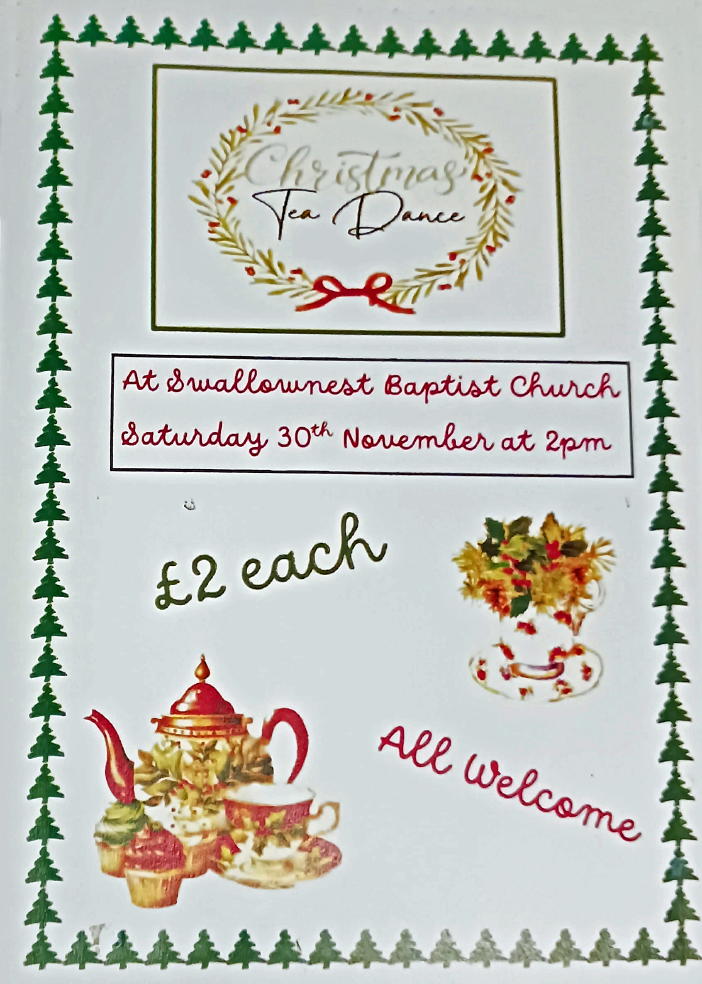 Christmas
Tea Dance
At Swallownest Baptist Church
Saturday 30th November at 2pm
£2 each
All Welcome